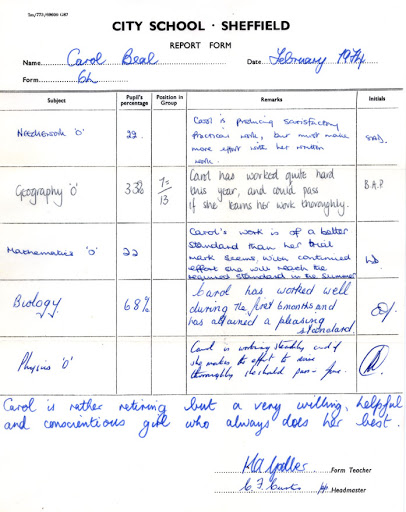 CITY SCHOOL · SHEFFIELD
REPORT FORM
Name Carol Beal Date February 1974
Form 6h
Subject Pupil's percentage Position in Group Remarks Initials
Needlework 'O' 22
Carol is producing satisfactory
practical work, but must make
more effort with her written
work.
Geography 'O' 33% 7= 13
Carol has worked quite hard
this year, and could pass
if she learns her work thoroughly.
B.A.P.
Mathematics 'O' 22
Carol's work is of a better
standard than her trial
mark seems. With continued
effort she will reach the
required standard in the summer
Biology 68%
Carol has worked well
during the first 6 months and
has attained a pleasing
standard
Physics 'O'
Carol is working steadily and if
she makes the effort to revise
thoroughly she should pass - June.
Carol is rather retiring but a very willing, helpful
and conscientious girl who always does her best.
Form Teacher
Headmaster